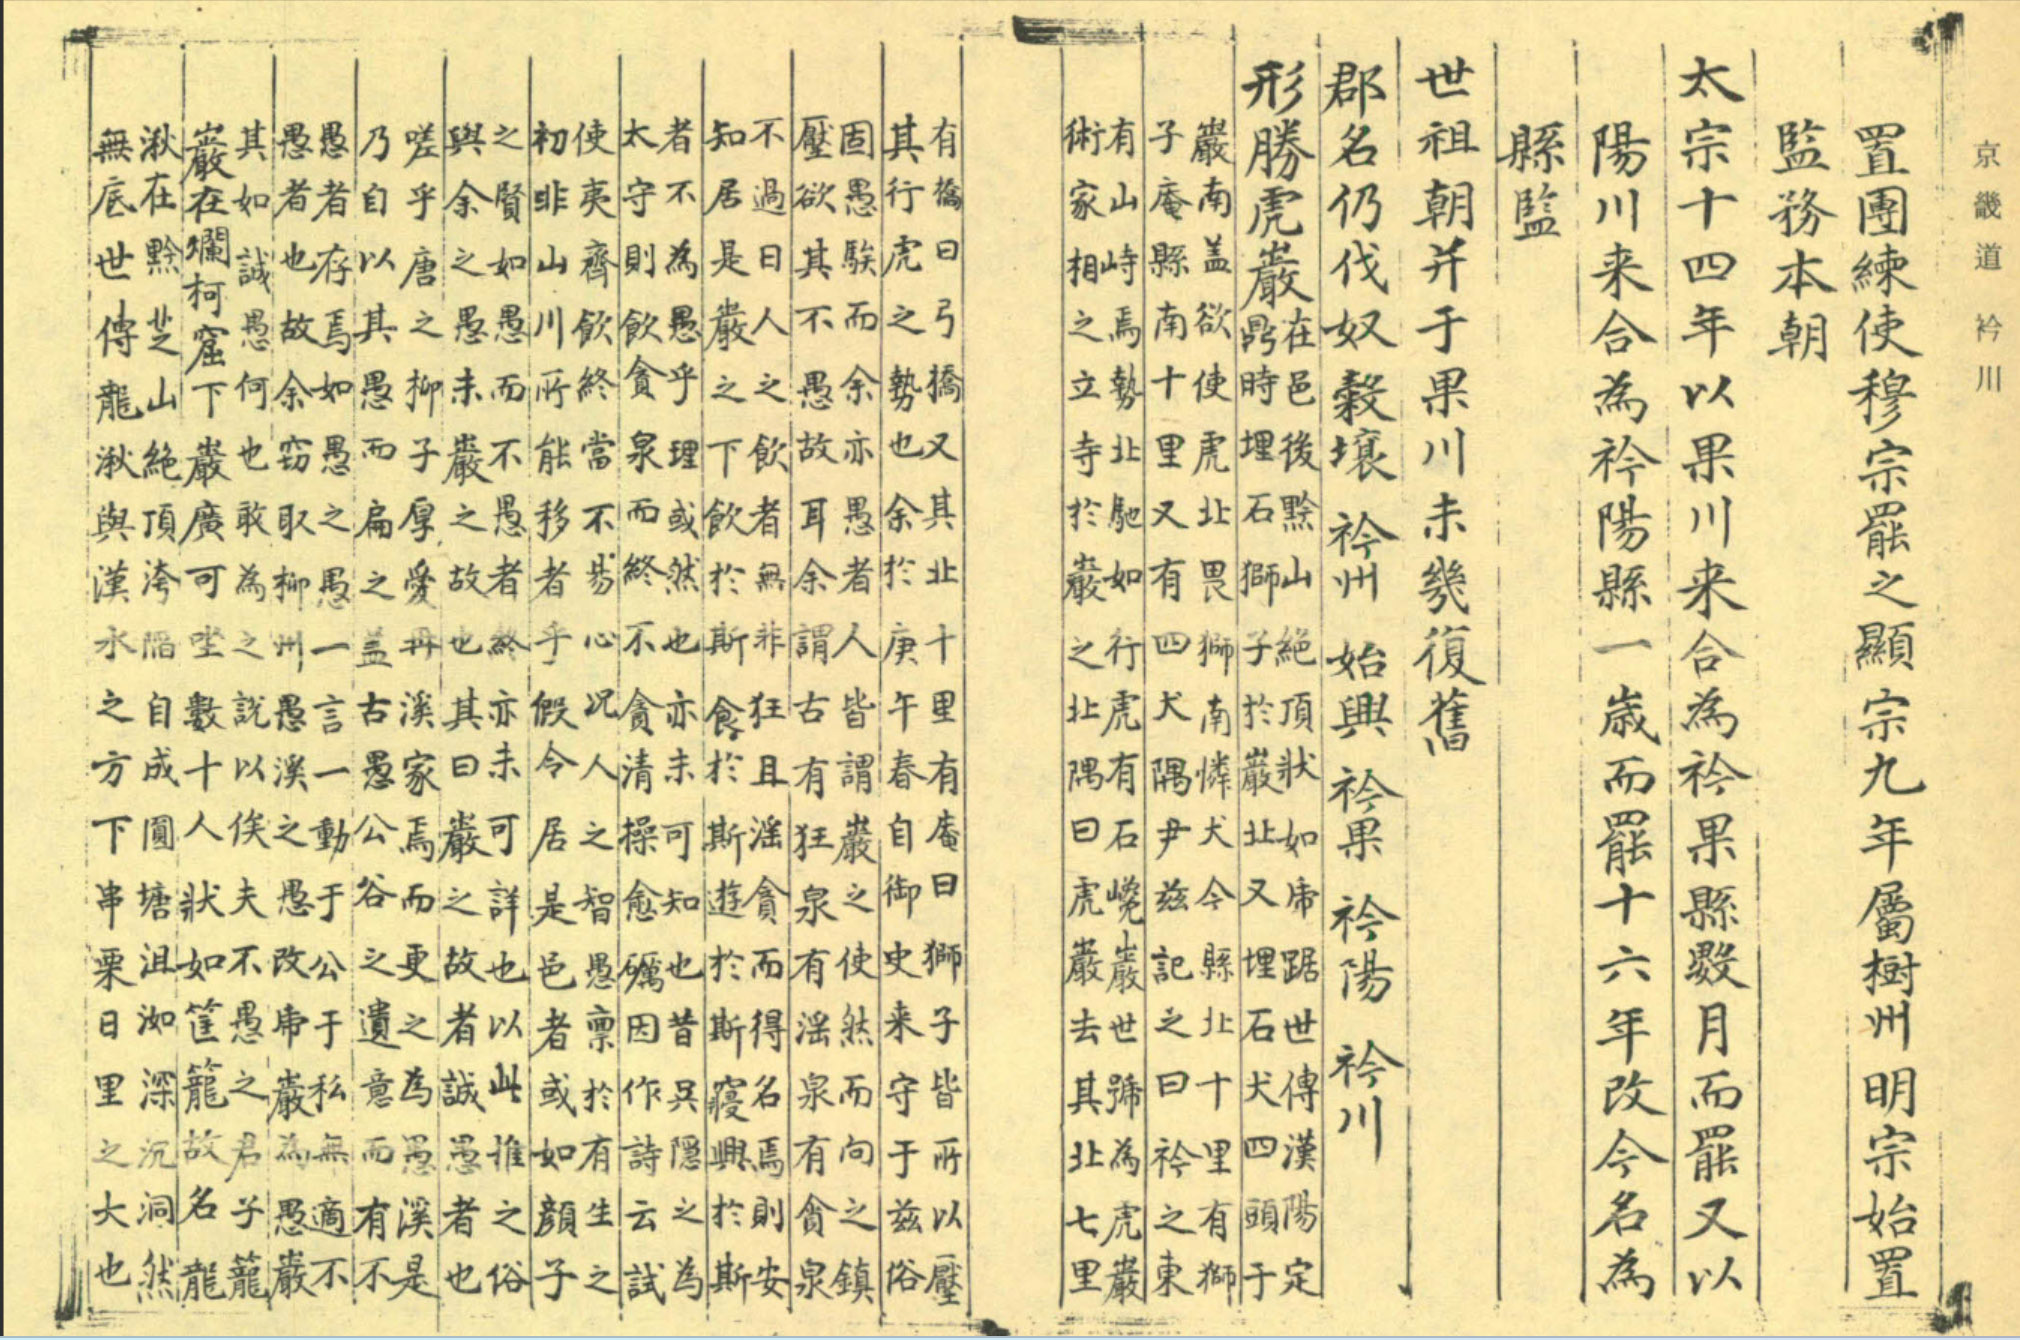 京畿道 衿川
置團練使穆宗罷之顯宗九年屬樹州明宗始置
監務本朝
太宗十四年以果川来合為衿果縣數月而罷又以
陽川来合為衿陽縣一歳而罷十六年改今名為
縣監
世祖朝并于果川未幾復舊
郡名仍伐奴 穀壤 衿州 始興 衿果 衿陽 衿川
形勝虎巖
在邑後黔山絶頂狀如席踞世傳漢陽定
鼎時埋石獅子於巖北又埋石犬四頭于
巖南盖欲使虎北畏獅南憐犬今縣北十里有獅
子庵縣南十里又有四犬隅尹玆記之曰衿之東
有山峙焉勢北馳如行虎有石巉巖世號為虎巖
術家相之立寺於巖之北隅曰虎巖去其北七里
有橋曰弓橋又其北十里有庵曰獅子皆所以壓
其行虎之勢也余於庚午春自御史来守于玆俗
固愚騃而余亦愚者人皆謂巖之使然而向之鎮
壓欲其不愚故耳余謂古有狂泉有滛泉有貪泉
不過曰人之飲者無非狂且滛貪而得名焉則安
知居是巖之下飲於斯食於斯遊於斯寢興於斯
者不為愚乎理或然也亦未可知也昔吳隱之為
太守則飲貪泉而終不貪清操愈礪因作詩云試
使夷齊飲終當不易心况人之智愚禀於有生之
初非山川所能移者乎假令居是邑者或如顔子
之賢如愚而不愚者終亦未可詳也以此推之俗
與余之愚未巖之故也其曰巖之故者誠愚者也
嗟乎唐之柳子厚愛冉溪家焉而更之為愚溪是
乃自以其愚而扁之盖古愚公谷之遺意而有不
愚者存焉如愚之愚一言一動于公于私無適不
愚者也故余窃取柳州愚溪之愚改席巖為愚巖
其如誠愚何也敢為之說以俟夫不愚之君子籠
巖在爛柯窟下巖廣可坐數十人狀如筐籠故名龍
湫在黔芝山絶頂洿陷自成圓塘沮洳深沉洞然
無底世傳龍湫與漢水之方下串栗日里之大也